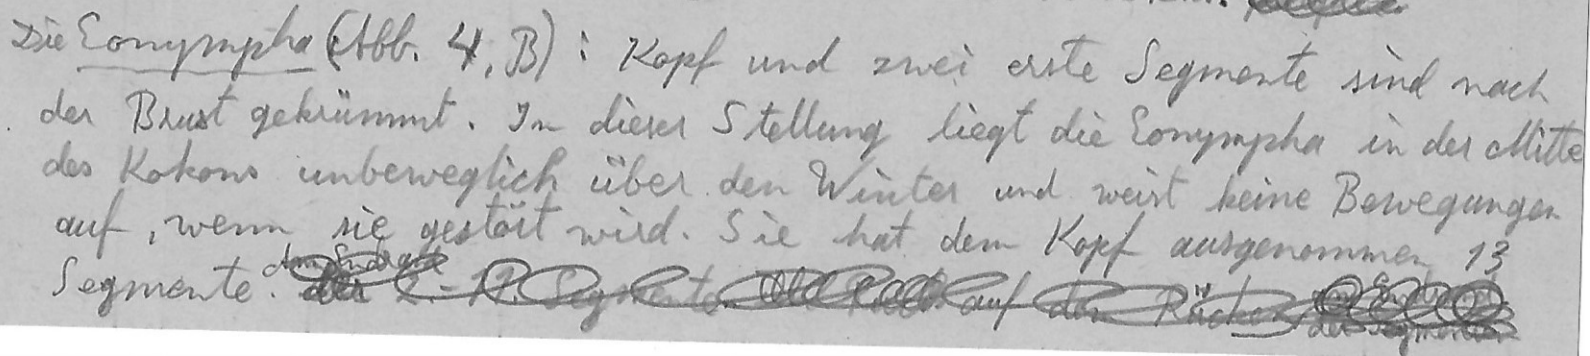 Die Eonympha (Abb. 4, B): Kopf und zwei erste Segmente sind nach
der Brust gekrümmt. In dieser Stellung liegt die Eonympha in der Mitte
des Kokons unbeweglich über den Winter und weist keine Bewegungen
auf, wenn sie gestört wird. Sie hat dem Kopf ausgenommen 13
Segmente. auf den Rücken